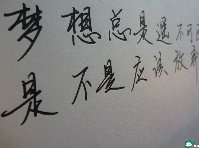 梦想总是遥不可
是不是应该放弃